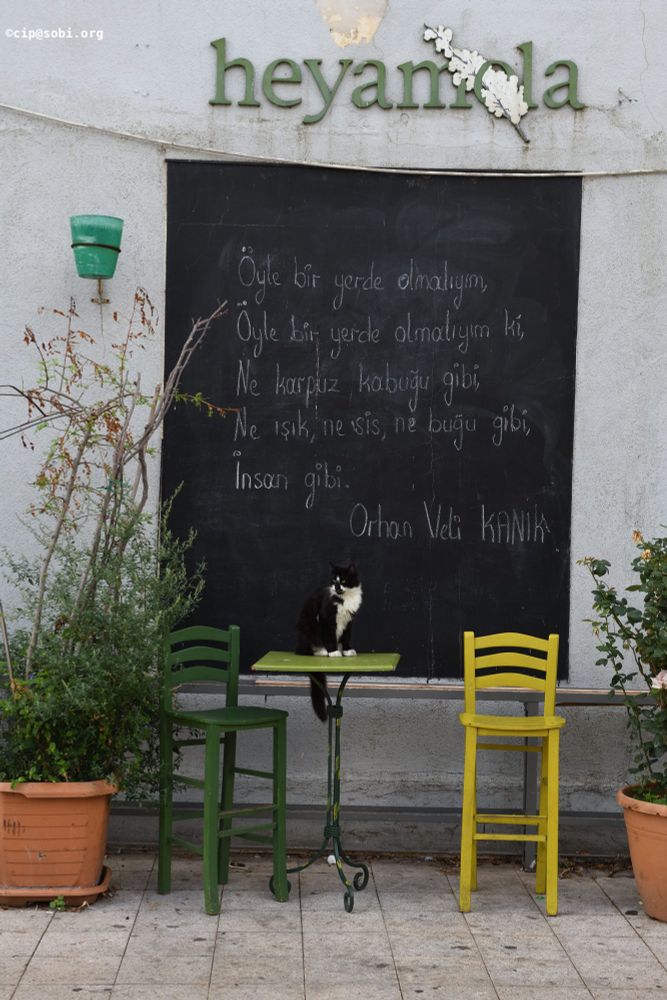 ©cip@sobi.org
heyamola
Öyle bir yerde olmalıyım,
Öyle bir yerde olmalıyım ki,
Ne karpuz kabuğu gibi,
Ne ışık, ne sis, ne buğu gibi,
İnsan gibi.
Orhan Veli KANIK